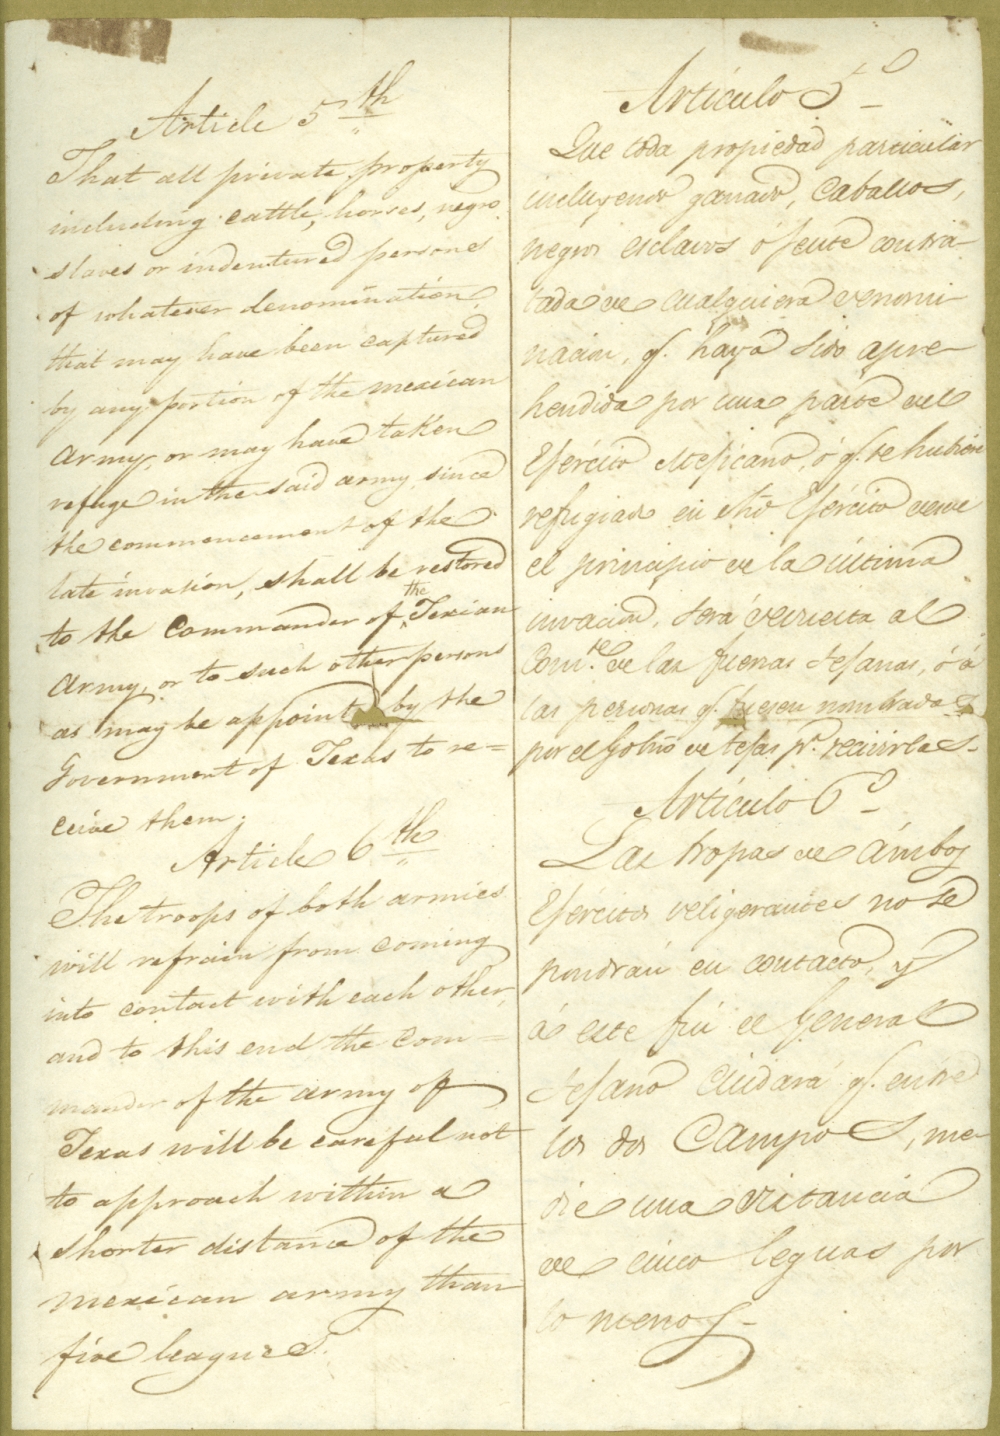 Article 5th
That all private property
including cattle, horses, negro
slaves or indentured persons
of whatever denomination
that may have been captured
by any portion of the mexican
army, or may have taken
refuge in the said army since
the commencement of the
late invasion, shall be restored
to the Commander of the Texian
army, or to such other persons
as may be appointed by the
Government of Texas to re=
ceive them.
Article 6th
The troops of both armies
will refrain from coming
into contact with each other,
and to this end the Com=
mander of the army of
Texas will be careful not
to approach within a
shorter distance of the
mexican army than
five leagues.
Artículo 5º
Que toda propiedad particular
incluyendo ganado, caballos,
negros esclavos ó jente contra-
tada de cualquiera denomi-
nacion, q. haya sido apre-
hendida por una parte del
Ejército Mejicano, ó q. se hubiere
refugiado en dho Ejército desde
el principio de la última
invacion, será devuelta al
Comte. de las fuerzas Tejanas, ó á
las personas q. fuesen nombradas
por el Gobno de Tejas pa. recivirlas-
Artículo 6º
Las tropas de ámbos
Ejércitos veligerantes no se
pondrán en contacto, y
á este fin el General
Tejano cuidará q. entre
los dos Campos, me-
die una distancia
de cinco leguas por
lo menos-